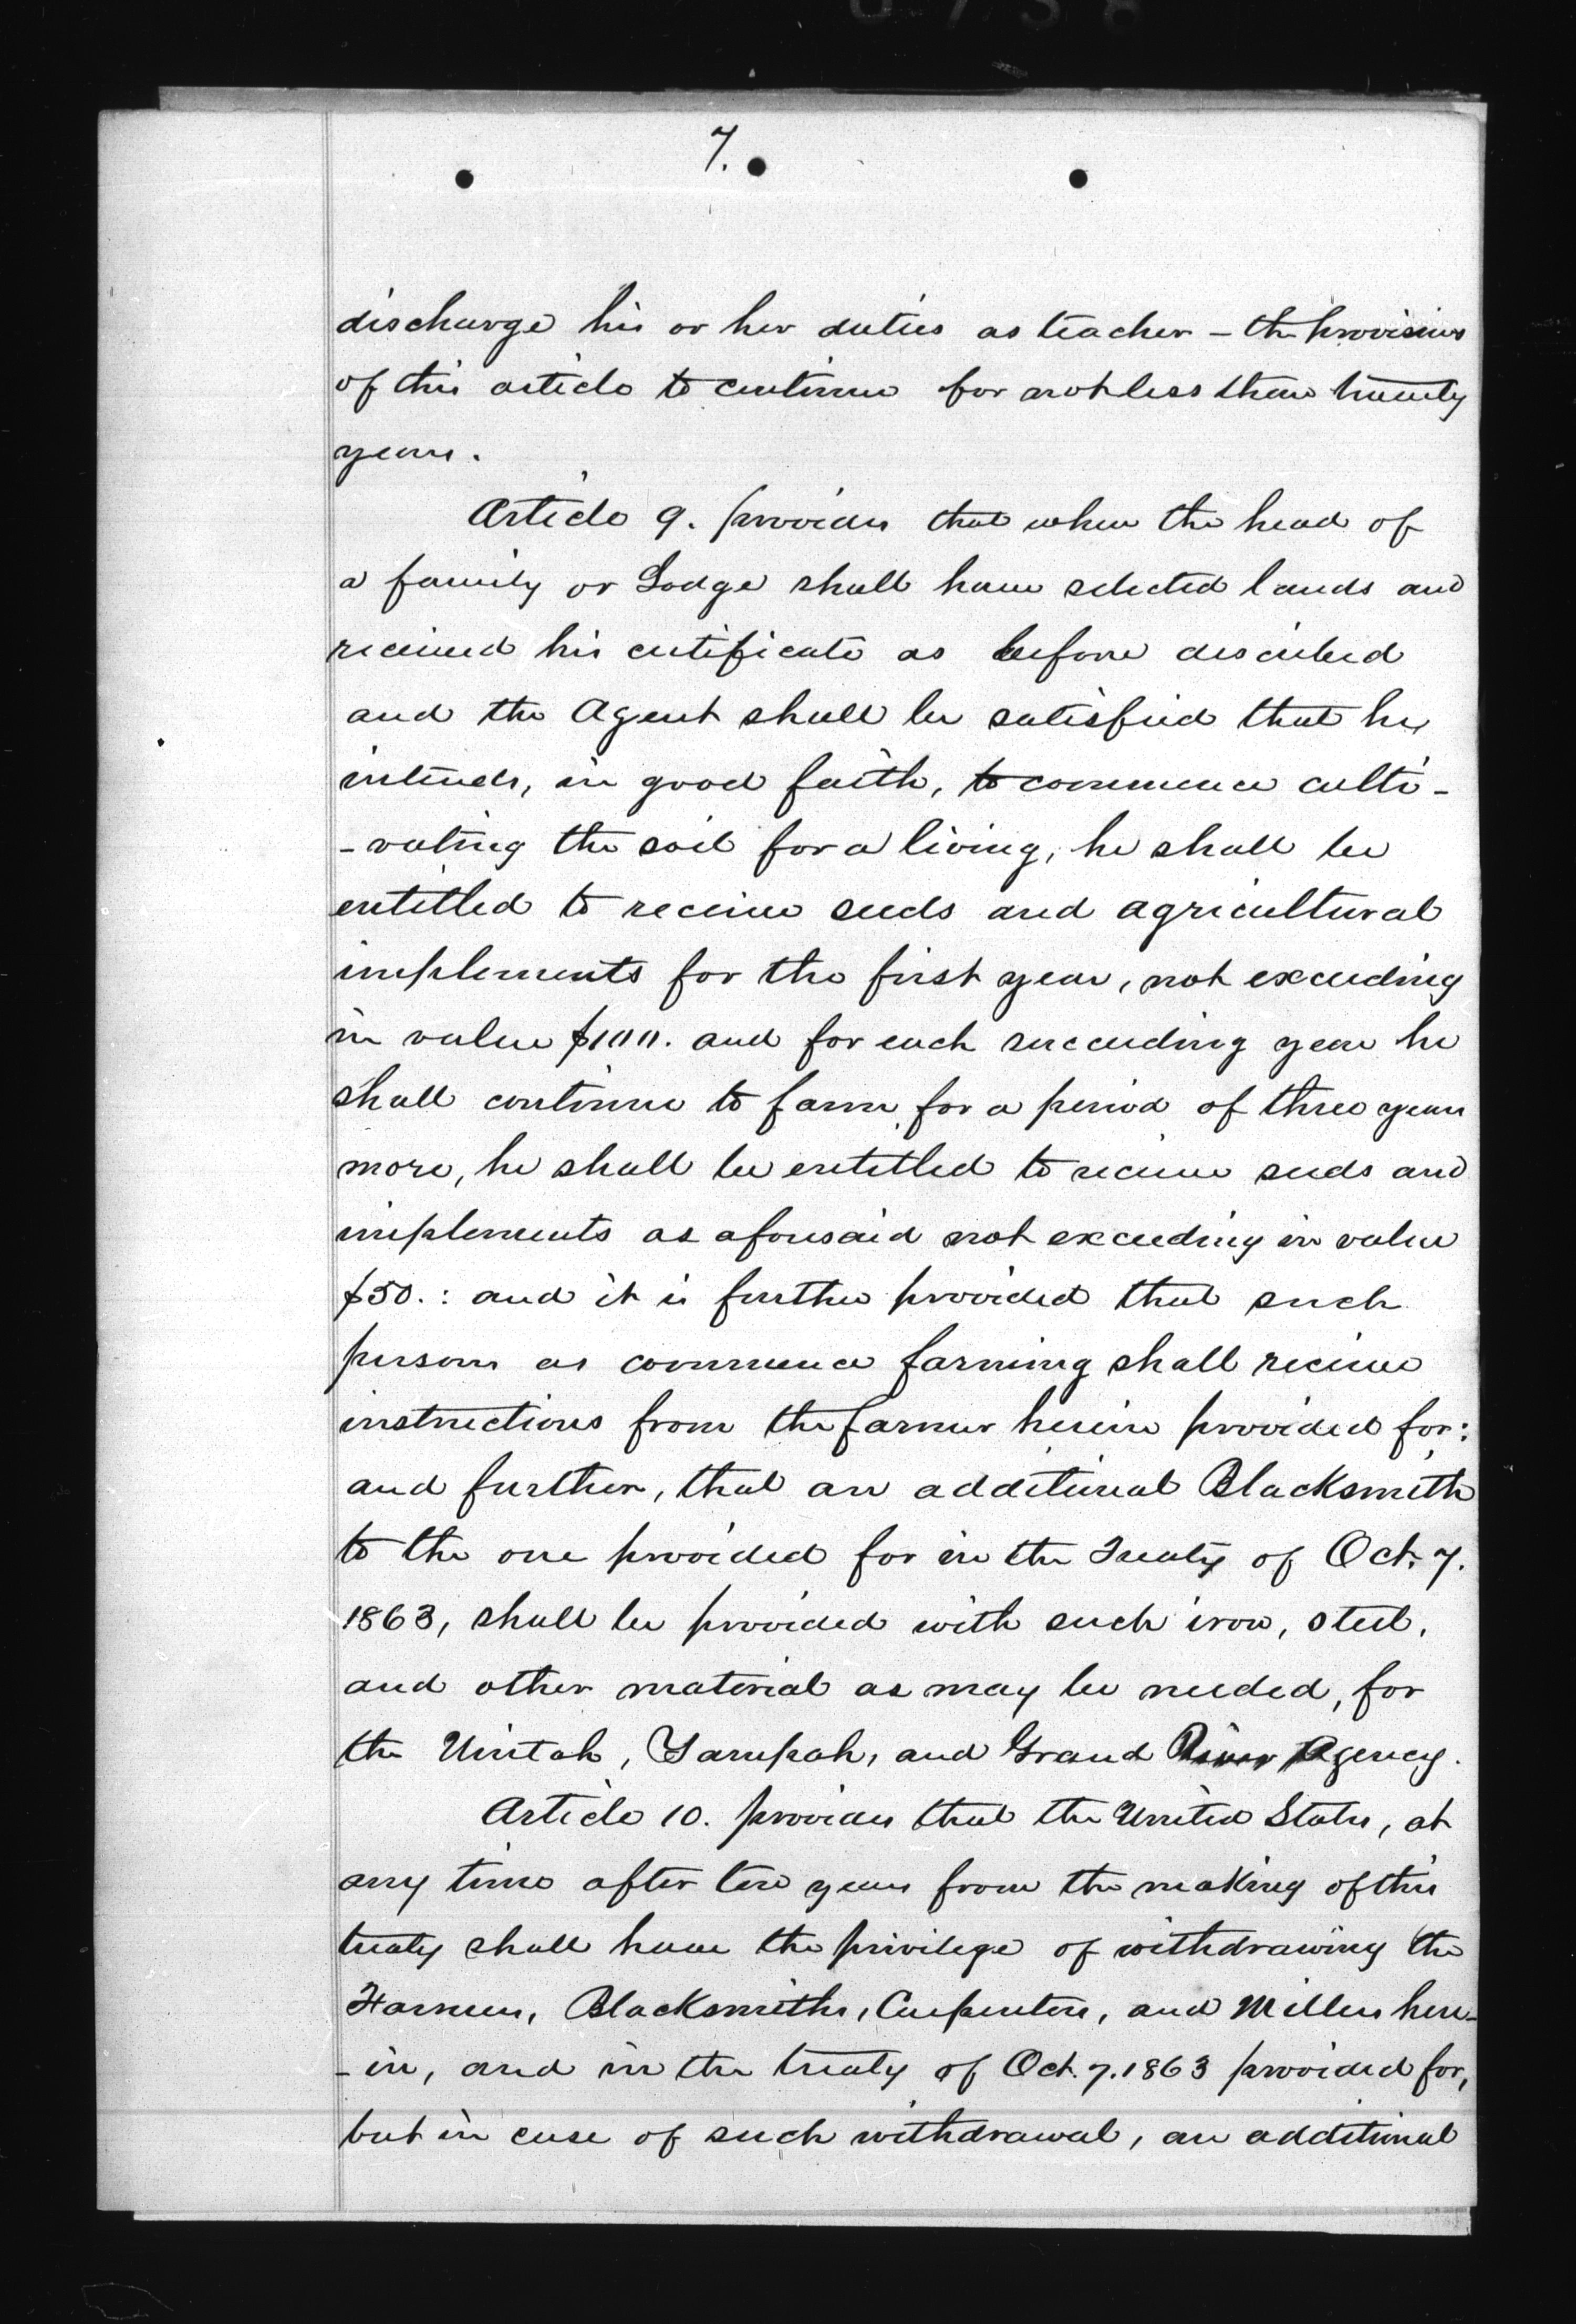 7.
discharge his or her duties as teacher - the provisions
of this article to continue for not less than twenty
years.
Article 9. provides that when the head of
a family or Lodge shall have selected lands and
received his certificate as before described
and the Agent shall be satisfied that he
intends, in good faith, to commence culti-
-vating the soil for a living, he shall be
entitled to receive seeds and agricultural
implements for the first year, not exceeding
in value $100. and for each succeeding year he
shall continue to farm for a period of three years
more, he shall be entitled to receive seeds and
implements as aforesaid not exceeding in value
$50.: and it is further provided that such
persons as commence farming shall receive
instructions from the farmer herein provided for:
and further, that an additional Blacksmith
to the one provided for in the Treaty of Oct. 7.
1863, shall be provided with such iron, steel,
and other material as may be needed, for
the Uintah, Yampah, and Grand River Agency.
Article 10. provides that the United States, at
any time after ten years from the making of this
treaty shall have the privilege of withdrawing the
Farmers, Blacksmiths, Carpenters, and Millers here-
-in, and in the treaty of Oct. 7. 1863 provided for,
but in case of such withdrawal, an additional